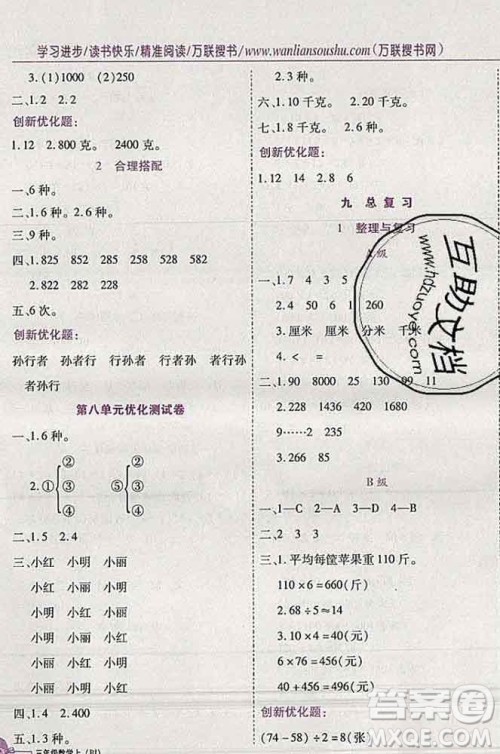 学习进步/读书快乐/精准阅读/万联搜书/www.wanliansoushu.com(万联搜书网)
3.(1)1000 (2)250
二、1.2 2.4
创新优化题:
1.12 2.800克。 2400克。
2 合理搭配
一、6种。
二、1.6种。 2.6种。
三、9种。
四、1.825 852 285 258 528 582
2.822 282 228
五、6次。
创新优化题:
孙行者 孙者行 行孙者 行者孙 者行孙
者孙行
第八单元优化测试卷
一、1.6种。
2.①{②③④ ⑤{②③④
二、1.5 2.4
三、小红 小明 小丽
小红 小丽 小明
小明 小红 小丽
小明 小丽 小红
小丽 小明 小红
小丽 小红 小明
四、1.4 2.400
五、1.5种。
三年级数学上(BJ)
2.3种。
六、1.10千克。 2.10千克。
七、1.8种。
创新优化题:
1.12 14 2.8 6
九 总复习
1 整理与复习
A级
一、1.7 4 3 5
2.4 50 6 1 260
3.厘米 厘米 分米 千米
4.< = 
二、1.80 8 2000 25 8130 90 99 11
2.2870 4028 438 305
9……2 235
3.266 85
B级
一、1—C 2—A 3—D
三、1.平均每筐苹果重110斤。
110×6=660(斤)
2.68÷5≈14
3.10×4=40(元)
6×76=456(元)
40+456=496(元)
创新优化题:
(74-58)÷2=8(张)
互助文档
www.hdzuoye.com
答案圈